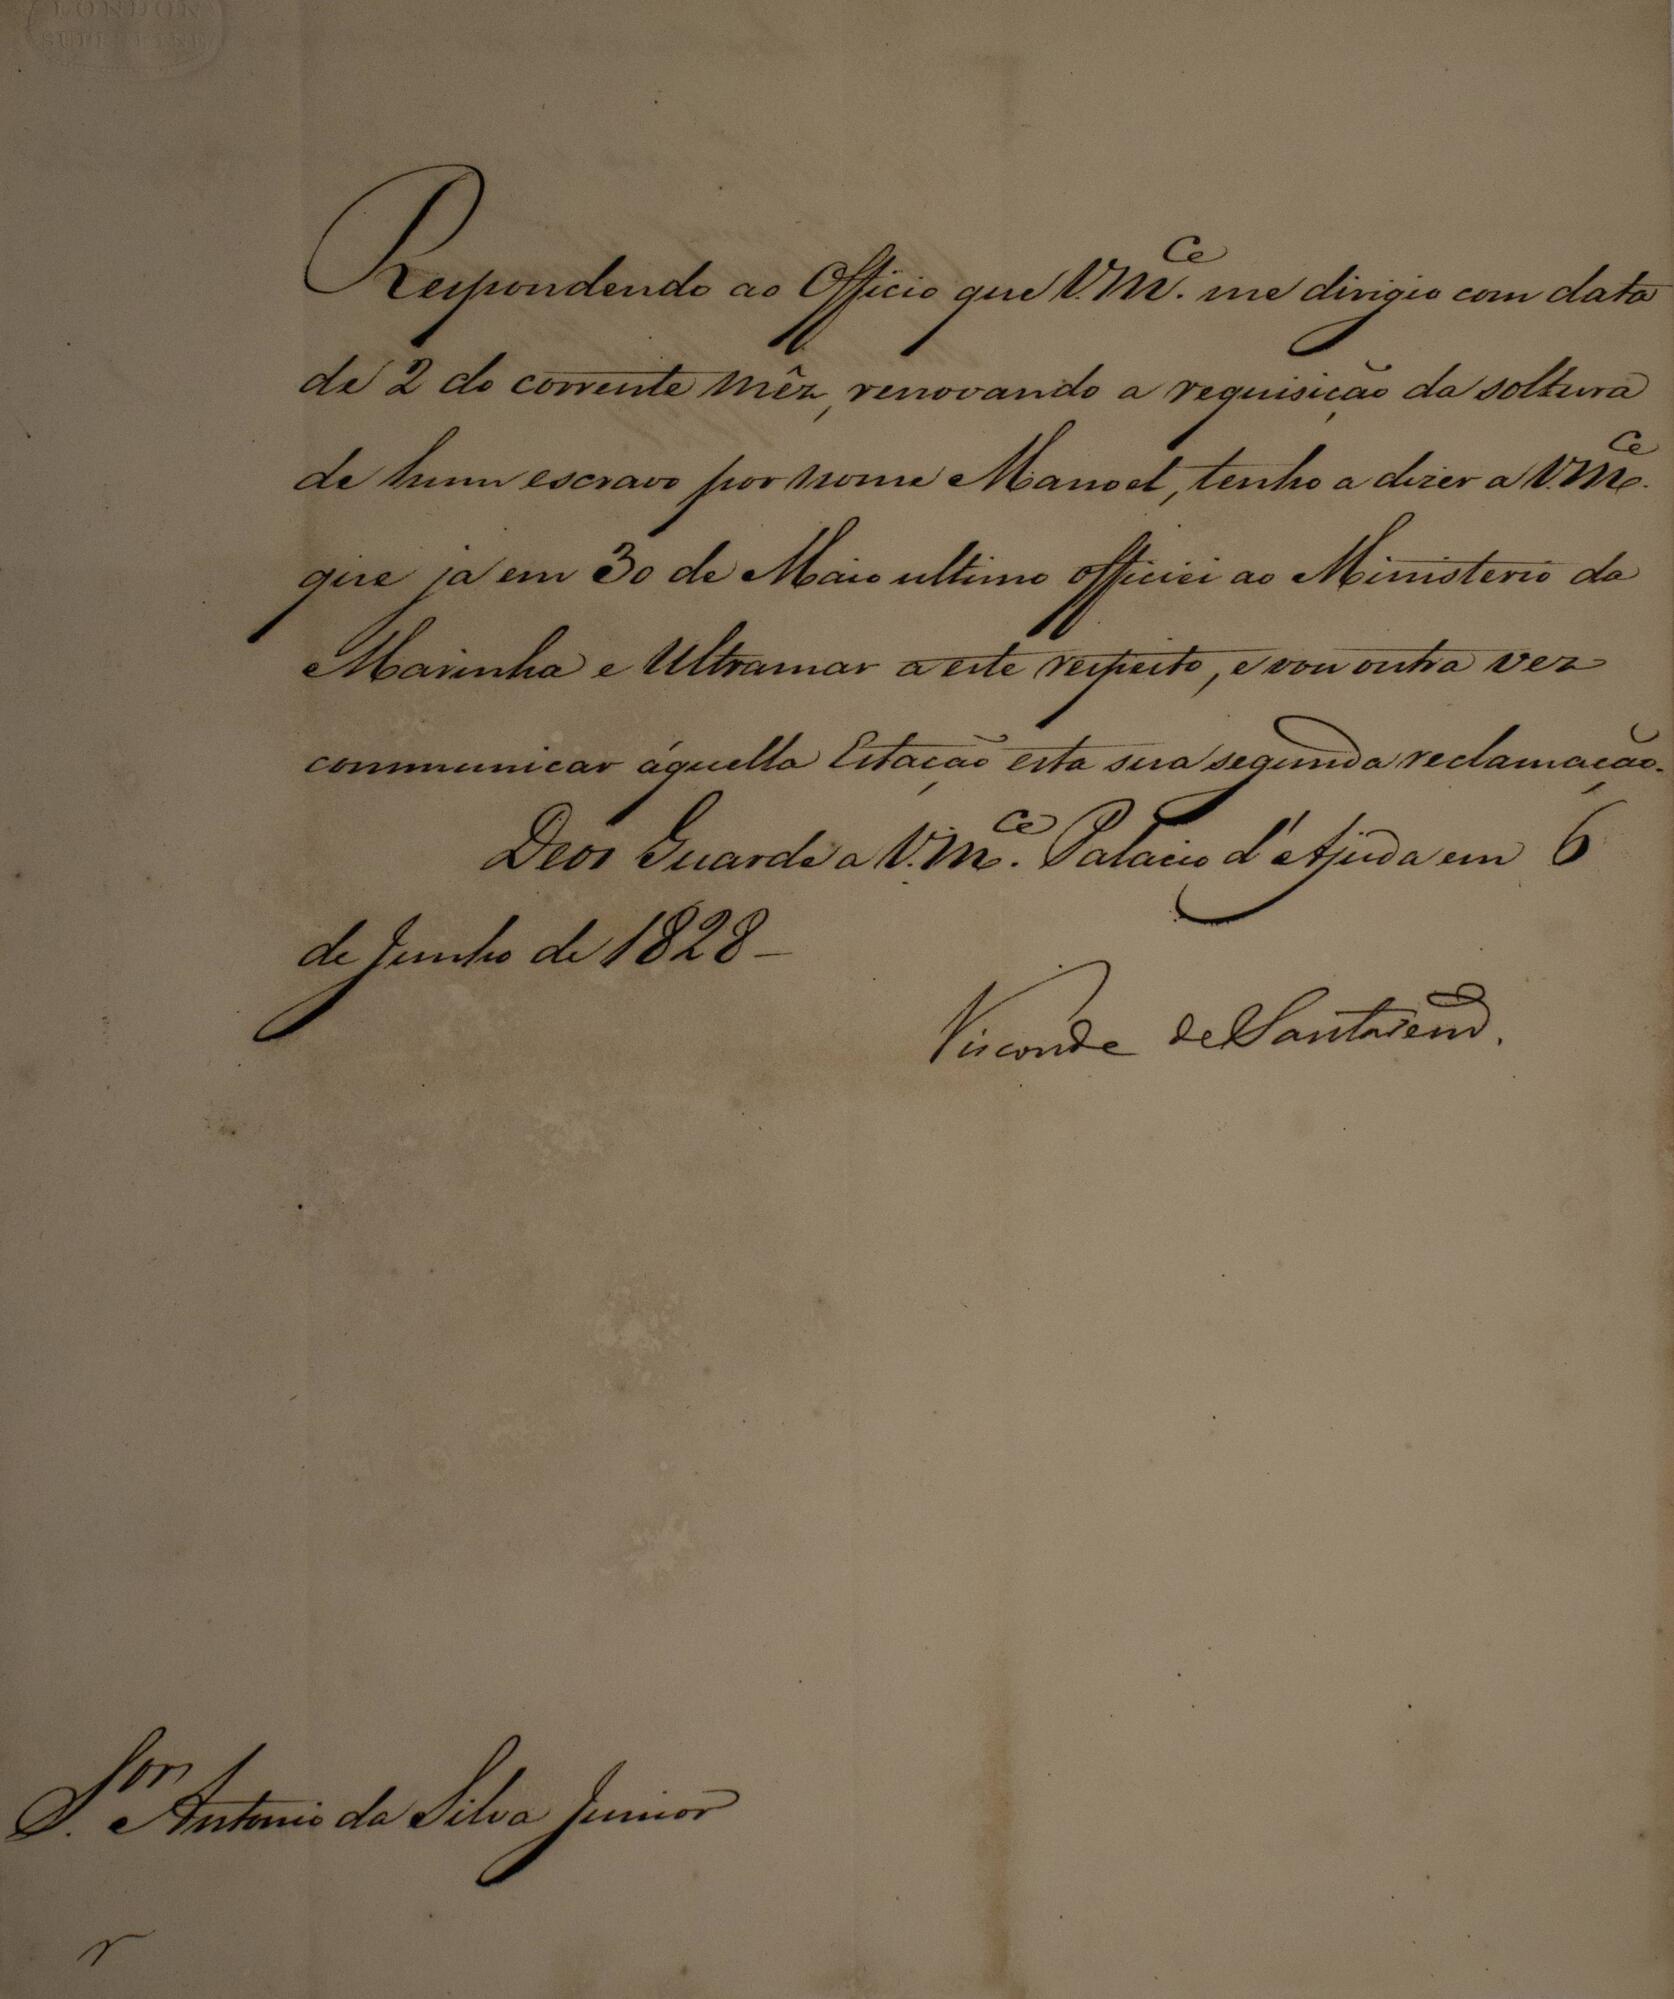 LONDON
SUPERFINE
Respondendo ao Officio que V.M.ce me dirigio com data
de 2 do corrente mêz, renovando a requisição da soltura
de hum escravo por nome Manoel, tenho a dizer a V.M.ce
que ja em 30 de Maio ultimo officiei ao Ministerio da
Marinha e Ultramar a este respeito, e vou outra vez
communicar áquella Estação esta sua segunda reclamação.
Deos Guarde a V.M.ce Palacio d'Ajuda em 6
de Junho de 1828 –
Visconde de Santarem.
S.or Antonio da Silva Junior